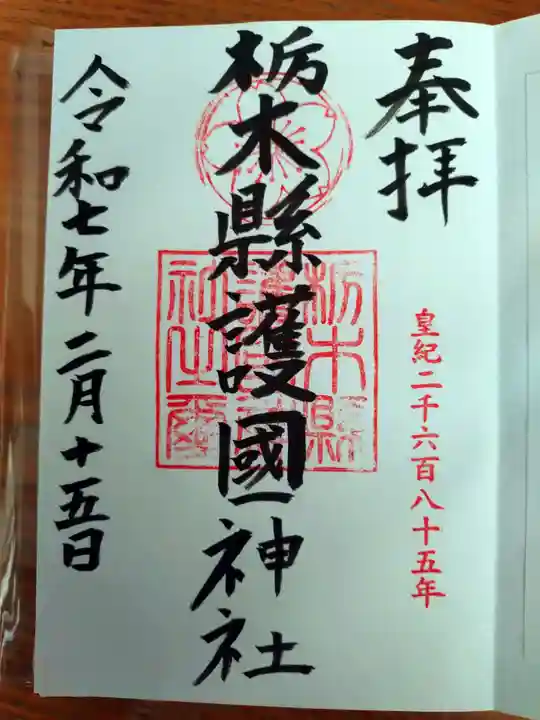 奉拝
皇紀二千六百八十五年
栃木縣護國神社
栃木縣護國神社之印
令和七年二月十五日